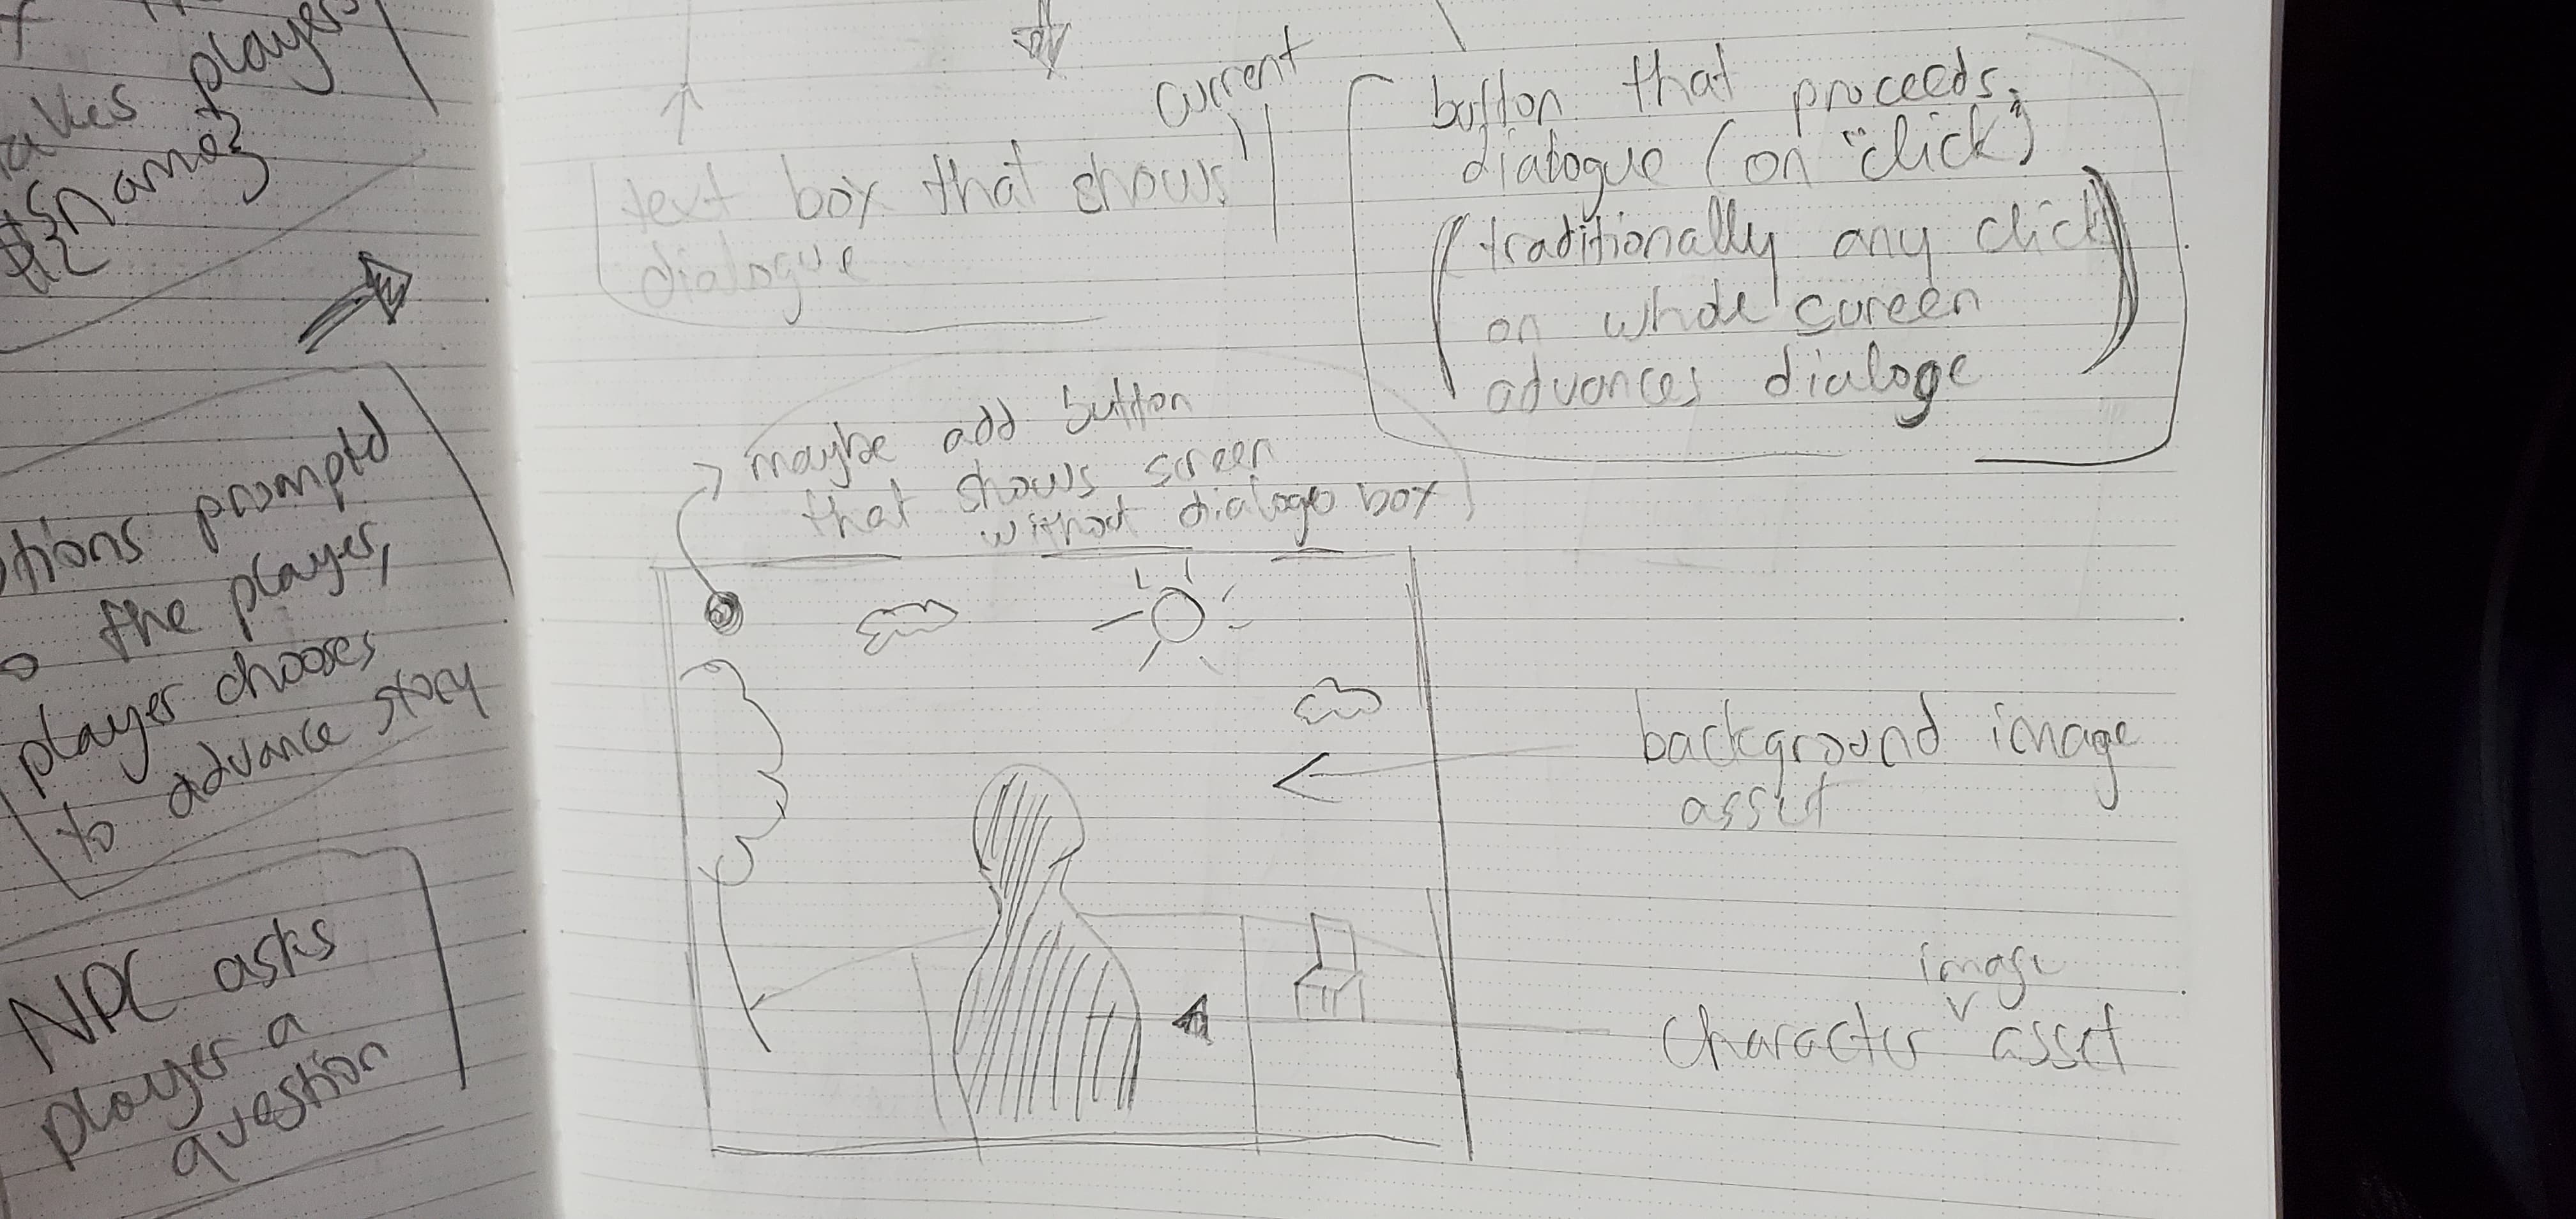 players
{name}
prompted
the player,
player chooses
to advance story
NPC asks
player a
question
current
text box that shows
dialogue
button that proceeds
dialogue (on "click")
(traditionally any click
on whole screen
advances dialoge)
maybe add button
that shows screen
without dialoge box
background image
asset
image
character asset